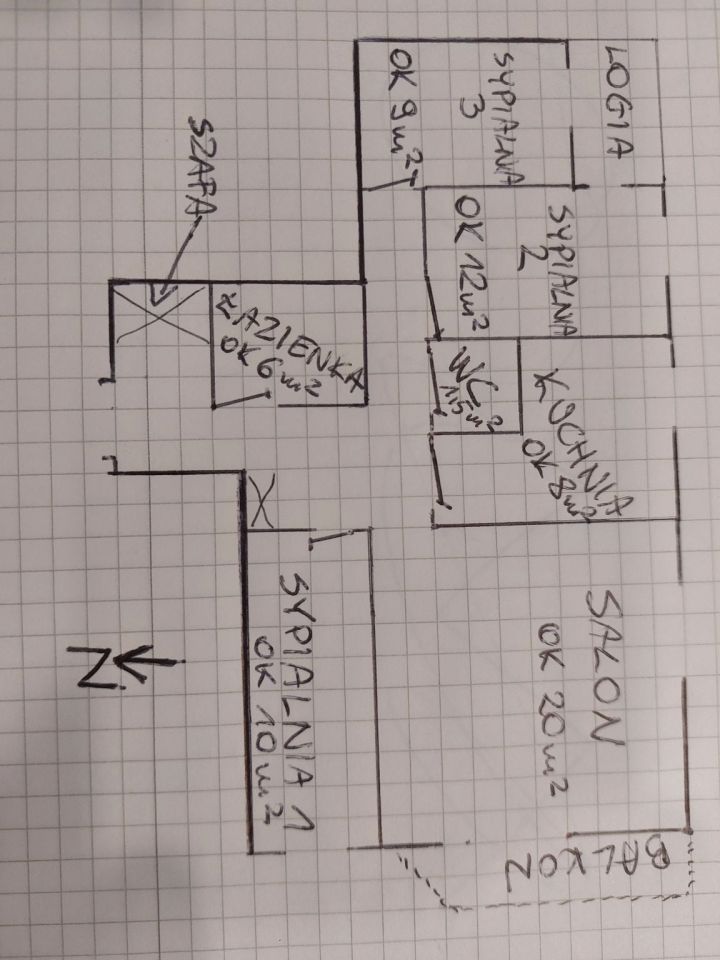 LOGIA
SYPIALNA
3
OK 9m²
SYPIALNA
2
OK 12m²
SZAFA
ŁAZIENKA
OK 6m²
WC
1,5m²
KUCHNIA
OK 8m²
SALON
OK 20m²
SYPIALNIA 1
OK 10m²
BALKON
N